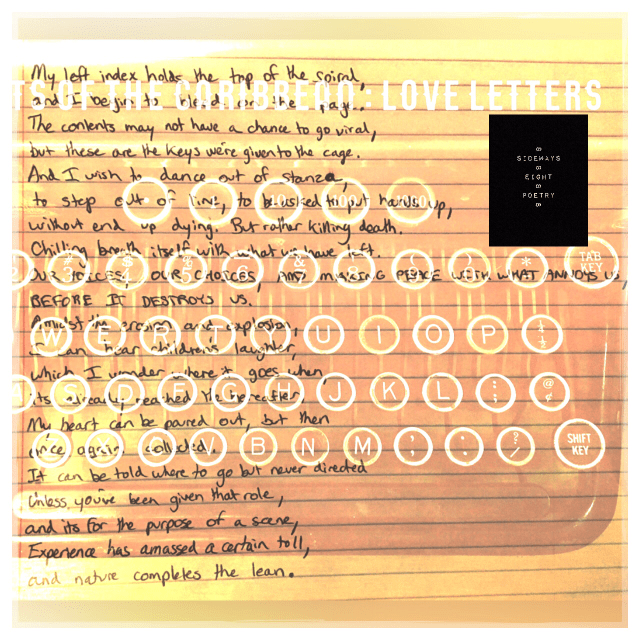 My left index holds the top of the spiral,
TS OF THE CORNBREAD: LOVE LETTERS
and I begin to bleed on the page.
The contents may not have a chance to go viral,
but these are the keys we're given to the cage.
And I wish to dance out of stanza,
to step out of line, to be asked to put hands up,
without end up dying. But rather killing death.
Chilling breath itself with what we have left.
OUR VOICES, OUR CHOICES, AND MAKING PEACE WITH WHAT ANNOYS US,
BEFORE IT DESTROYS US.
Amidst the erosion and explosion,
I can hear children's laughter,
which I wonder where it goes when
its already reached the hereafter.
My heart can be poured out, but then
once again collected.
It can be told where to go but never directed
Unless you've been given that role,
and its for the purpose of a scene,
Experience has amassed a certain toll,
and nature completes the lean.
8
SIDEWAYS
8
EIGHT
8
POETRY
8
# 3 $ 4 % 5 & 7 * TAB KEY
W E R T Y U I O P ½ ¼
S D F G H J K L : ; @ ¢
X C V B N M , . ? / SHIFT KEY